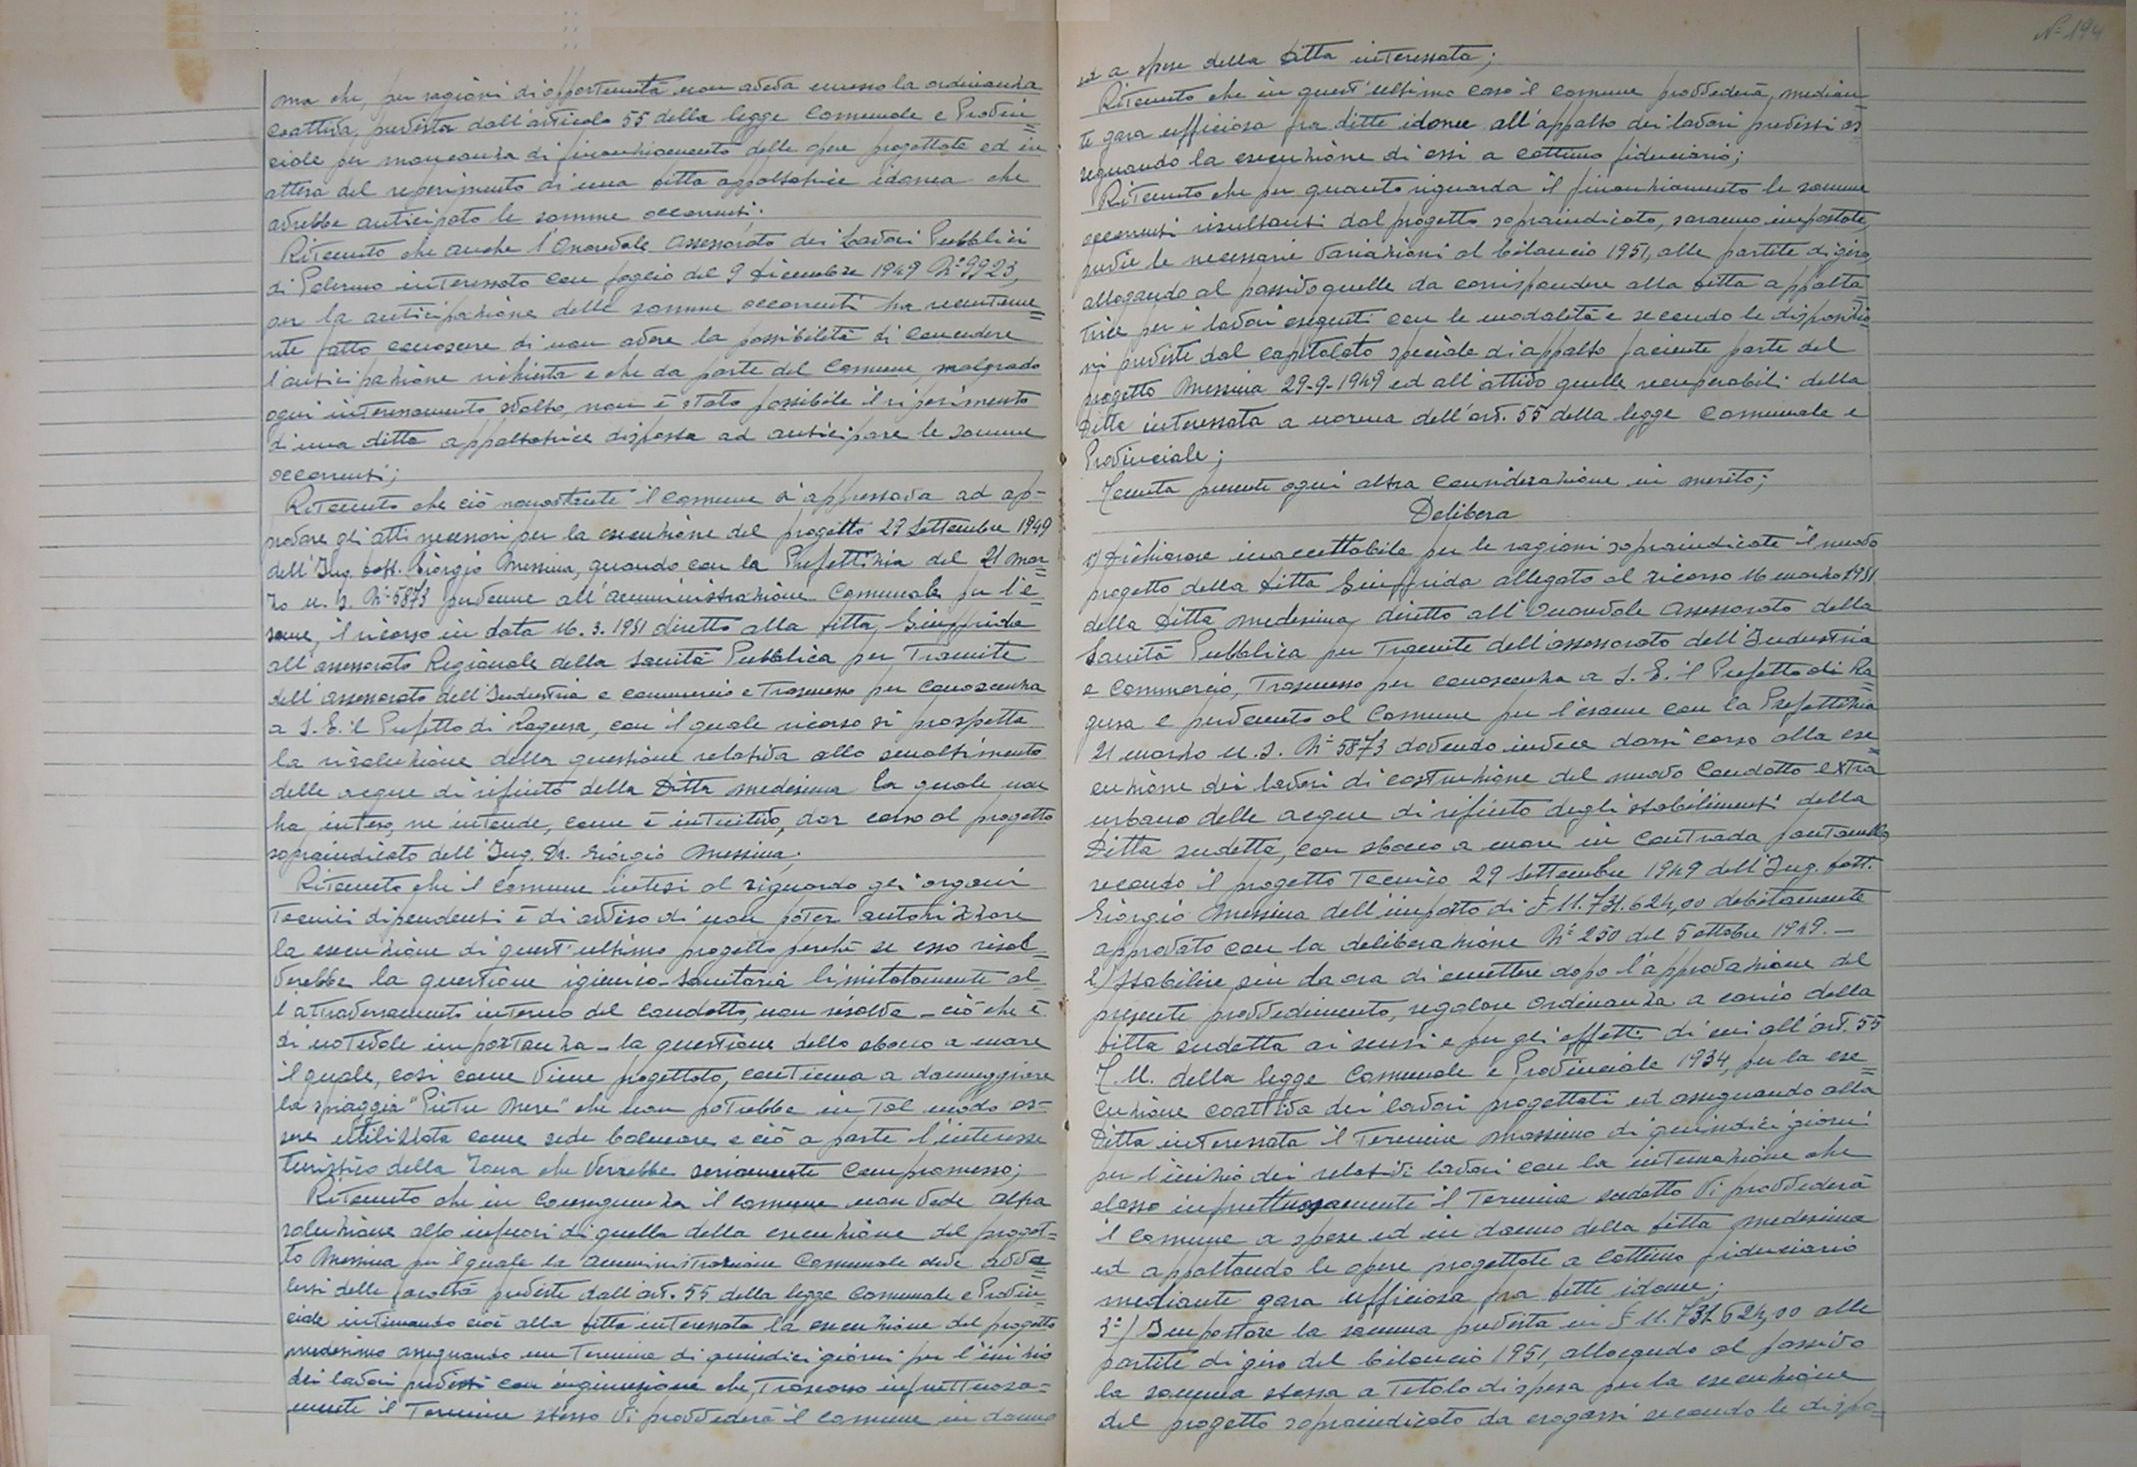 ma che, per ragioni di opportunità non aveva emesso la ordinanza
coattiva, prevista dall'articolo 55 della legge Comunale e Provin=
ciale per mancanza di finanziamento delle opere progettate ed in
attesa del reperimento di una Ditta appaltatrice idonea che
avrebbe anticipato le somme occorrenti.
Ritenuto che anche l'Onorevole Assessorato dei Lavori Pubblici
di Palermo interessato con foglio del 9 Dicembre 1949 N° 9923,
per la anticipazione delle somme occorrenti ha recenteme=
nte fatto conoscere di non avere la possibilità di concedere
l'anticipazione richiesta e che da parte del Comune, malgrado
ogni interessamento svolto, non è stato possibile il riperimento
di una ditta appaltatrice disposta ad anticipare le somme
occorrenti;
Ritenuto che ciò nonostante il Comune si appressava ad ap=
provare gli atti necessari per la esecuzione del progetto 29 Settembre 1949
dell'Ing. Dott. Giorgio Messina, quando con la Prefettizia del 21 mar=
zo u. s. N° 5873 pervenne all'Amministrazione Comunale per l'e=
same, il ricorso in data 16. 3. 1951 diretto alla Ditta Giuffrida
all'assessorato Regionale della Sanità Pubblica per Tramite
dell'assessorato dell'Industria e commercio e Trasmesso per conoscenza
a S. E. il Prefetto di Ragusa, con il quale ricorso si prospetta
la risoluzione della questione relativa allo smaltimento
delle acque di rifiuto della Ditta medesima la quale non
ha inteso, ne intende, come è intuitivo, dar corso al progetto
sopraindicato dell'Ing. Dr. Giorgio Messina;
Ritenuto che il Comune intesi al riguardo gli organi
Tecnici dipendenti è di avviso di non poter autorizzare
la esecuzione di quest'ultimo progetto perché se esso risol=
verebbe la questione igienico-sanitaria limitatamente al=
l'attraversamento interno del condotto, non risolve - ciò che è
di notevole importanza - la questione dello sbocco a mare
il quale, così come viene progettato, continua a danneggiare
la spiaggia "Pietre Nere" che non potrebbe in tal modo es=
sere utilizzata come sede balneare e ciò a parte l'interesse
turistico della zona che verrebbe seriamente compromesso;
Ritenuto che in conseguenza il comune non vede altra
soluzione all'infuori di quella della esecuzione del proget=
to Messina per il quale la Amministrazione Comunale deve avva=
lersi delle facoltà previste dall'art. 55 della legge Comunale e Provin=
ciale intimando cioè alla Ditta interessata la esecuzione del progetto
medesimo assegnando un Termine di quindici giorni per l'inizio
dei lavori previsti con ingiunzione che, Trascorso infruttuosa=
mente il Termine stesso vi provvederà il Comune in danno
ed a spese della Ditta interessata;
Ritenuto che in quest'ultimo caso il comune provvederà, median=
te gara ufficiosa fra ditte idonee all'appalto dei lavori previsti as
segnando la esecuzione di essi a cottimo fiduciario;
Ritenuto che per quanto riguarda il finanziamento le somme
occorrenti risultanti dal progetto sopraindicato, saranno impostate,
previe le necessarie variazioni al bilancio 1951, alle partite di giro,
allogando al passivo quelle da corrispondere alla Ditta appalta=
trice per i lavori eseguiti con le modalità e secondo le disposizio=
ni previste dal capitolato speciale di appalto facente parte del
progetto Messina 29-9-1949 ed all'attivo quelle recuperabili della
Ditta interessata a norma dell'art. 55 della legge Comunale e
Provinciale;
Tenuta presente ogni altra considerazione in merito;
Delibera
1) Dichiarare inaccettabile per le ragioni sopraindicate il nuovo
progetto della Ditta Giuffrida allegato al ricorso 16 marzo 1951
della Ditta medesima, diretto all'Onorevole Assessorato della
Sanità Pubblica per Tramite dell'assessorato dell'Industria
e Commercio, Trasmesso per conoscenza a S. E. il Prefetto di Ra=
gusa e pervenuto al Comune per l'esame con la Prefettizia
21 marzo u. s. N° 5873 dovendo invece darsi corso alla ese=
cuzione dei lavori di costruzione del nuovo condotto extra
urbano delle acque di rifiuto degli stabilimenti della
Ditta sudetta, con sbocco a mare in contrada pantanello
secondo il progetto Tecnico 29 Settembre 1949 dell'Ing. Dott.
Giorgio Messina dell'importo di £ 11.731.624,00 debitamente
approvato con la deliberazione N° 250 del 5 ottobre 1949. -
2) Stabilire sin da ora di emettere dopo l'approvazione del
presente provvedimento, regolare ordinanza a carico della
Ditta sudetta ai sensi e per gli effetti di cui all'art. 55
T. U. della legge Comunale e Provinciale 1934, per la ese=
cuzione coattiva dei lavori progettati ed assegnando alla
Ditta interessata il Termine massimo di quindici giorni
per l'inizio dei relativi lavori con la intimazione che
elasso infruttuosamente il Termine sudetto vi provvederà
il Comune a spese ed in danno della Ditta medesima
ed appaltando le opere progettate a cottimo fiduciario
mediante gara ufficiosa fra Ditte idonee;
3°) Impostare la somma prevista in £ 11.731.624,00 alle
partite di giro del bilancio 1951, allogando al passivo
la somma stessa a Titolo di spesa per la esecuzione
del progetto sopraindicato da erogarsi secondo le dispo=